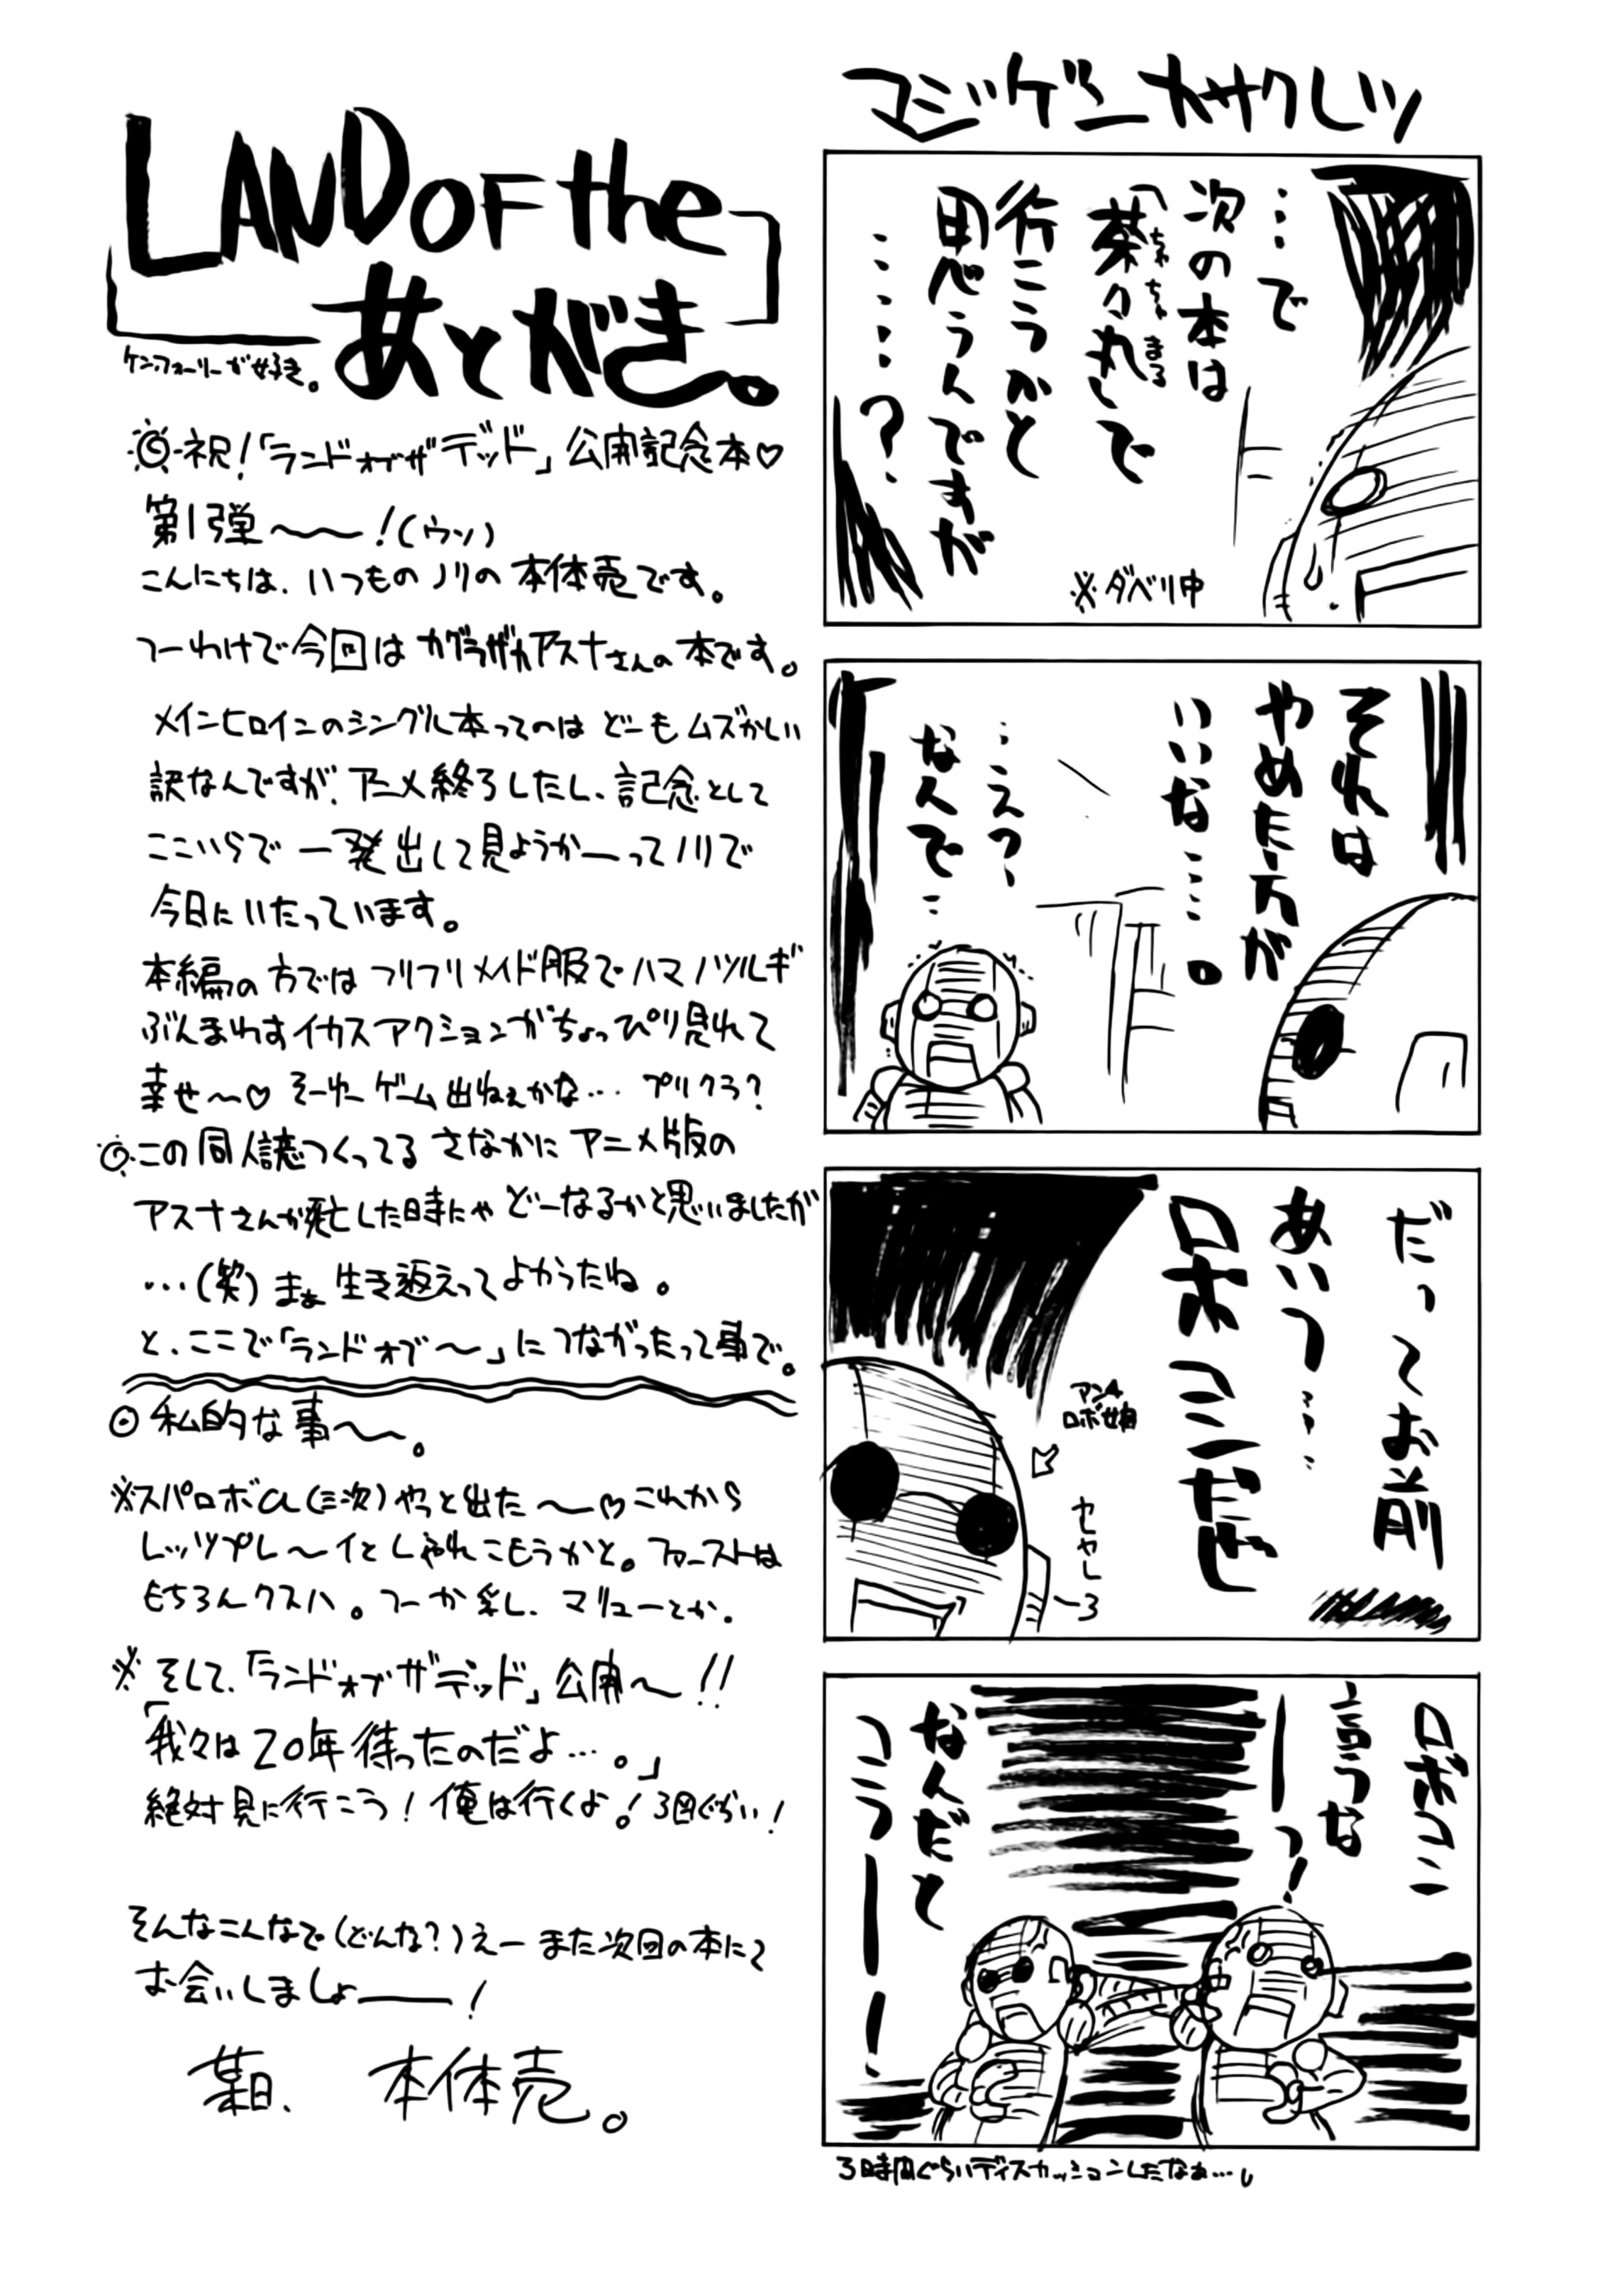 LAND OF the
あとがき。
ケン・フォーリーが好き。
◎祝!「ランドオブザデッド」公開記念本♡
第1弾〜〜!(ウソ)
こんにちは、いつものノリの本体売です。
つーわけで今回はカグラザカアスナさんの本です。
メインヒロインのシングル本ってのはどーもムズかしい
訳なんですが、アニメ終ろしたし、記念として
ここいらで一発出して見ようかーってノリで
今日にいたっています。
本編の方ではフリフリメイド服でハマノツルギ
ぶんまわすイカスアクションがちょっぴり見れて
幸せ〜♡ そーゆーゲーム出ねぇかな… プリクラ?
◎この同人誌つくってるさなかにアニメ版の
アスナさんが死亡した時にゃどーなるかと思いましたが
…(笑)まぁ生き返えってよかったね。
と、ここで「ランドオブ〜」につながったって事で。
◎私的な事〜。
※スパロボα(三次)やっと出た〜♡これから
レッツプレ〜イとしゃれこもうかと。ファーストは
もちろんクスハ。つーか楽し、マリューとか。
※そして、「ランドオブザデッド」公開〜!!
「我々は20年待ったのだよ…。」
絶対見に行こう!俺は行くよ!3回ぐらい!
そんなこんなで(どんな?)えーまた次回の本にて
お会いしましょーー!
某日、 本体売。
マジゲンカサクレツ
…で
次の本は
「茶々丸」で
ちゃちゃまる
行こうかと
思うんですが
……?
※ダベり中
それは
やめた方が
いいな……。
…えっ、
なんで…
だってお前
あいつ……
ロボコンだぜ
アンA
ロボ娘
セヤしろ
ロボコン
言うな
ーーっ!
なんだと
こうーーー!
3時間ぐらいディスカッションしたなぁ…。